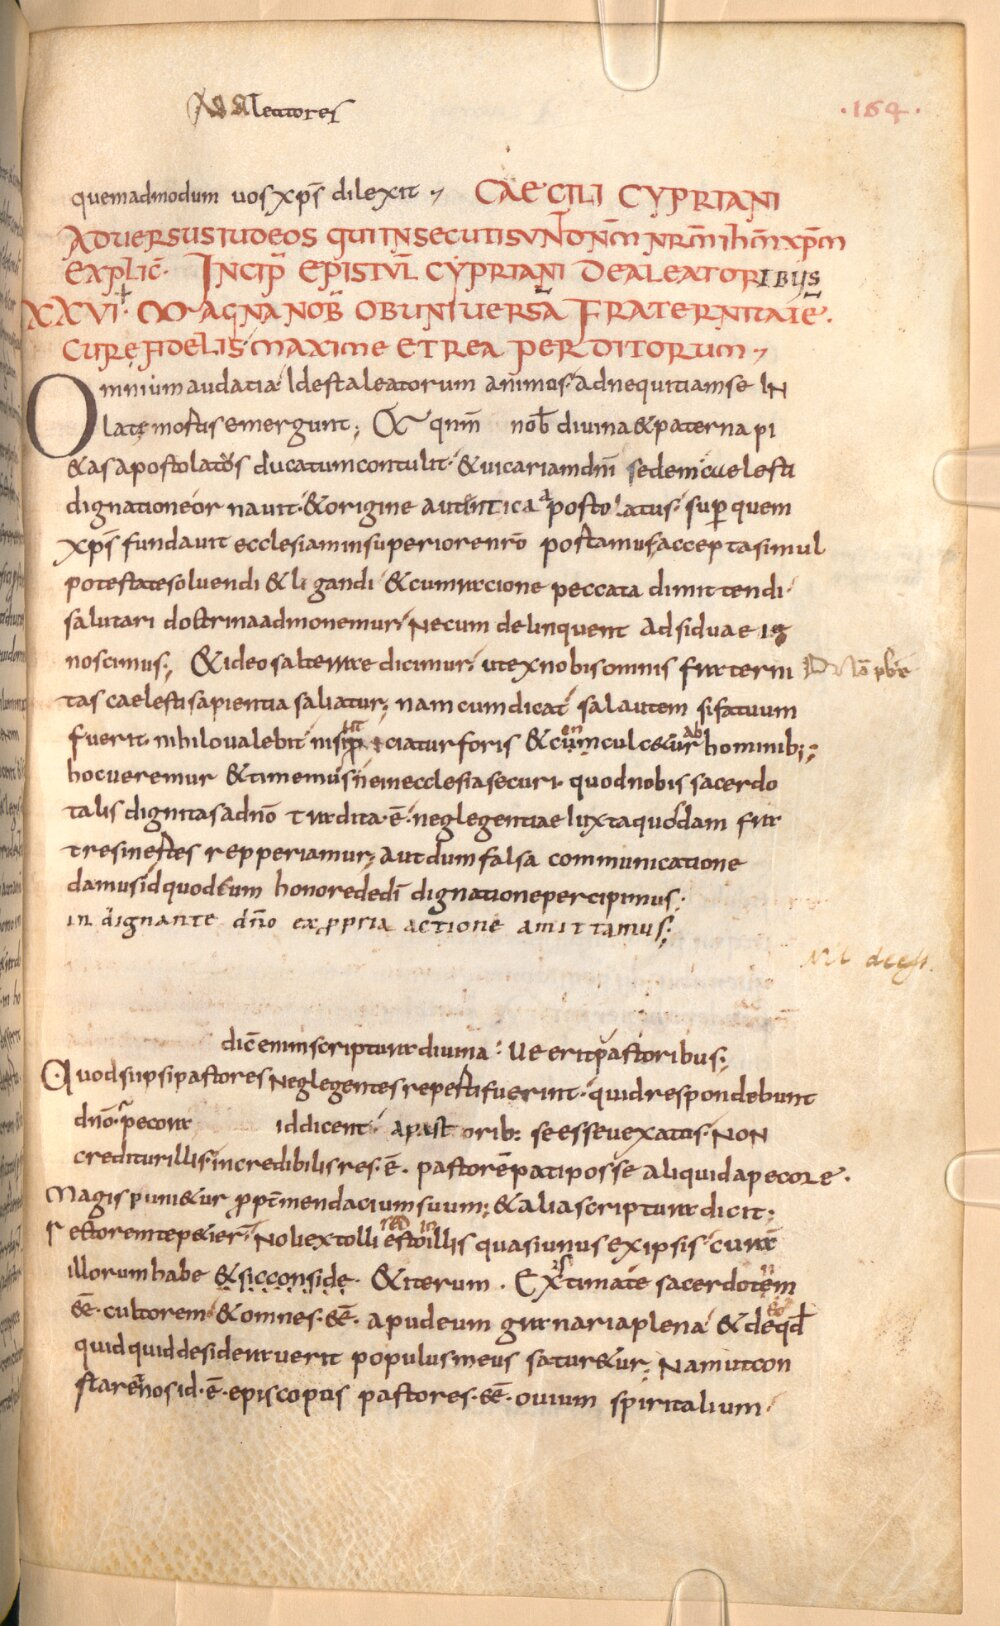 Ad aleatores
·164·
quemadmodum vos xp̄s dilexit CAECILI CYPRIANI
ADVERSUS IUDEOS QUI INSECUTI SVNT DN̄M NR̄M IHM̄ XP̄M
EXPLIC̄· INCIP̄ EPISTVL̄ CYPRIANI DE ALEATORIBUS
XXVI· MAGNA NOB̄ OB UNIUERSĀ FRATERNITATĒ·
CURĘ FIDELIS· MAXIME ET REA PERDITORUM
Omnium audatia· Id est aleatorum animos· ad nequitiam se IN
latę moſtis emergunt; & qnm̄ nob̄ divina & paterna pi
&as apostolatus ducatum contulit· & vicariam dn̄i sedem cælesti
dignatione ornavit· & origine autentica apostolatus· sup̄ quem
xp̄s fundavit ecclesiam in superiore nr̄o postamus, accepta simul
potestate solvendi & ligandi & cum racione peccata dimittendi·
salutari doctrina admonemur· Necum delinquent adsiduae ig
noscimus; & ideo saltemrae dicimur· ut ex nobis omnis fraterni
tas caelesti sapientia saliatur; nam cum dicat sal autem si fatuum
fuerit· nihilo valebit nisi ut p iciatur foris & cunculc&ur ab hominib;;
hoc veremur & timemus ne in ecclesia securi· quod nobis sacerdo
talis dignitas a dn̄o tradita·ē· neglegentiae iuxta quosdam fra
tres inestes repperiamur; aut dum falsa communicatione
damus id quod cum honore dedi dignatione percipimus;
in dignante dn̄o ex ppria actione amittamus;
dic̄ enim scriptura divina· Ve erit pastoribus;
Quod si ipsi pastores Neglegentes repesti fuerint· quid respondebunt
dn̄o· p̄ pecora id dicent· a past orib: se esse vexatis· NON
creditur illis· incredibilis res·ē· pastorē pati posse aliquid a pecore·
Magis puni&ur ppt̄ mendacium suum; & alia scriptura dicit;
rectorem te p&ier· Noli extolli esto in illis quasi unus ex ipsis· curā
illorum habe & sic conside· & iterum· Extimate sacerdotem
eē· cultorem & omnes·eē· apud eum granaria plena & de qd̄
quid quid desideraverit populus meus satur&ur; Nam ut con
staret nos id·ē· episcopus pastores·eē· ovium spiritalium·